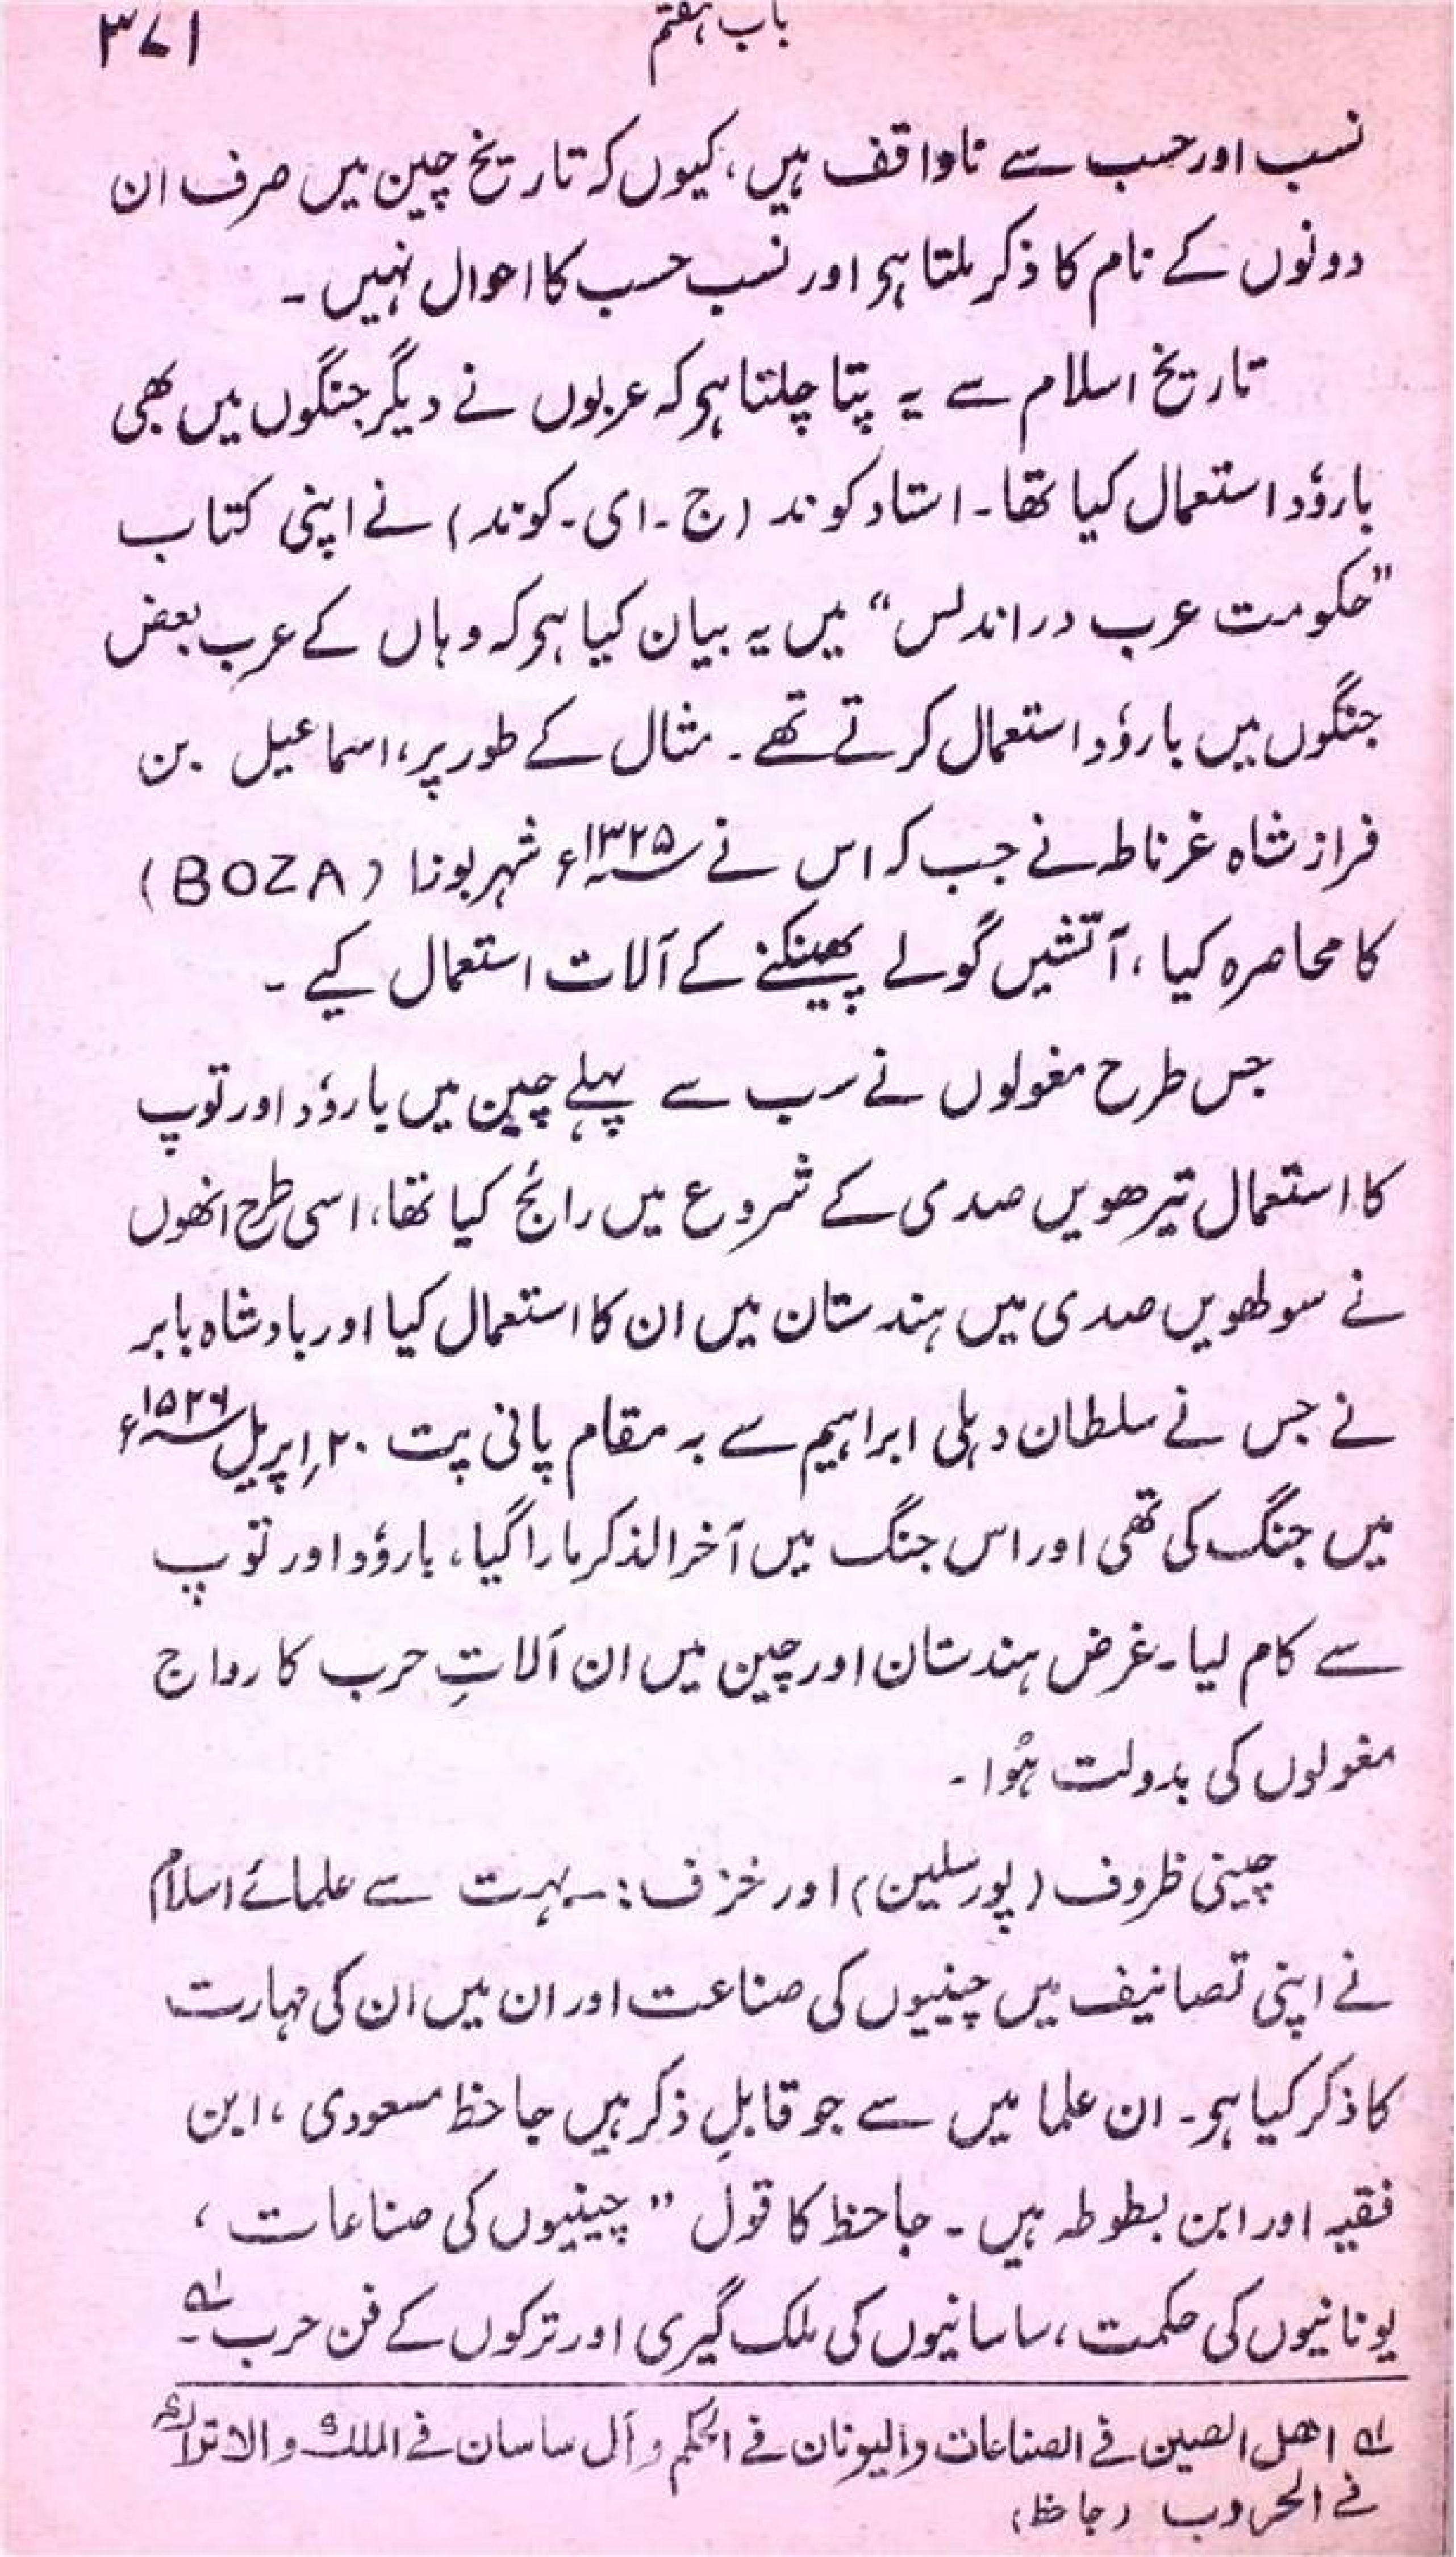 باب ہفتم
۳۷۱
نسب اور حسب سے ناواقف ہیں، کیوں کہ تاریخ چین میں صرف ان
دونوں کے نام کا ذکر ملتا ہی اور نسب حسب کا احوال نہیں ۔
تاریخ اسلام سے یہ پتا چلتا ہی کہ عربوں نے دیگر جنگوں میں بھی
بارؤد استعمال کیا تھا۔ استاد کوند (ج۔ ای۔ کوند) نے اپنی کتاب
”حکومت عرب در اندلس“ میں یہ بیان کیا ہی کہ وہاں کے عرب بعض
جنگوں میں بارؤد استعمال کرتے تھے۔ مثال کے طور پر، اسماعیل بن
فراز شاہ غرناطہ نے جب کہ اس نے ۱۳۲۵ء شہر بوزا (BOZA)
کا محاصرہ کیا، آتشیں گولے پھینکنے کے آلات استعمال کیے ۔
جس طرح مغولوں نے سب سے پہلے چین میں بارؤد اور توپ
کا استعمال تیرھویں صدی کے شروع میں رائج کیا تھا، اسی طرح انھوں
نے سولھویں صدی میں ہندستان میں ان کا استعمال کیا اور بادشاہ بابر
نے جس نے سلطان دہلی ابراہیم سے بہ مقام پانی پت ۲۰ اپریل ۱۵۲۶ء
میں جنگ کی تھی اور اس جنگ میں آخرالذکر مارا گیا، بارؤد اور توپ
سے کام لیا۔ غرض ہندستان اور چین میں ان آلاتِ حرب کا رواج
مغولوں کی بدولت ہؤا ۔
چینی ظروف (پورسلین) اور خزف :۔ بہت سے علمائے اسلام
نے اپنی تصانیف میں چینیوں کی صناعت اور ان میں ان کی مہارت
کا ذکر کیا ہی۔ ان علما میں سے جو قابلِ ذکر ہیں جاحظ مسعودی، ابن
فقیہ اور ابن بطوطہ ہیں ۔ جاحظ کا قول ”چینیوں کی صناعات،
یونانیوں کی حکمت، ساسانیوں کی ملک گیری اور ترکوں کے فن حرب۔ لہ
لہ اھل الصین فی الصناعات والیونان فی الحکم و آل ساسان فی الملك والاتراك
فی الحروب (جاحظ)